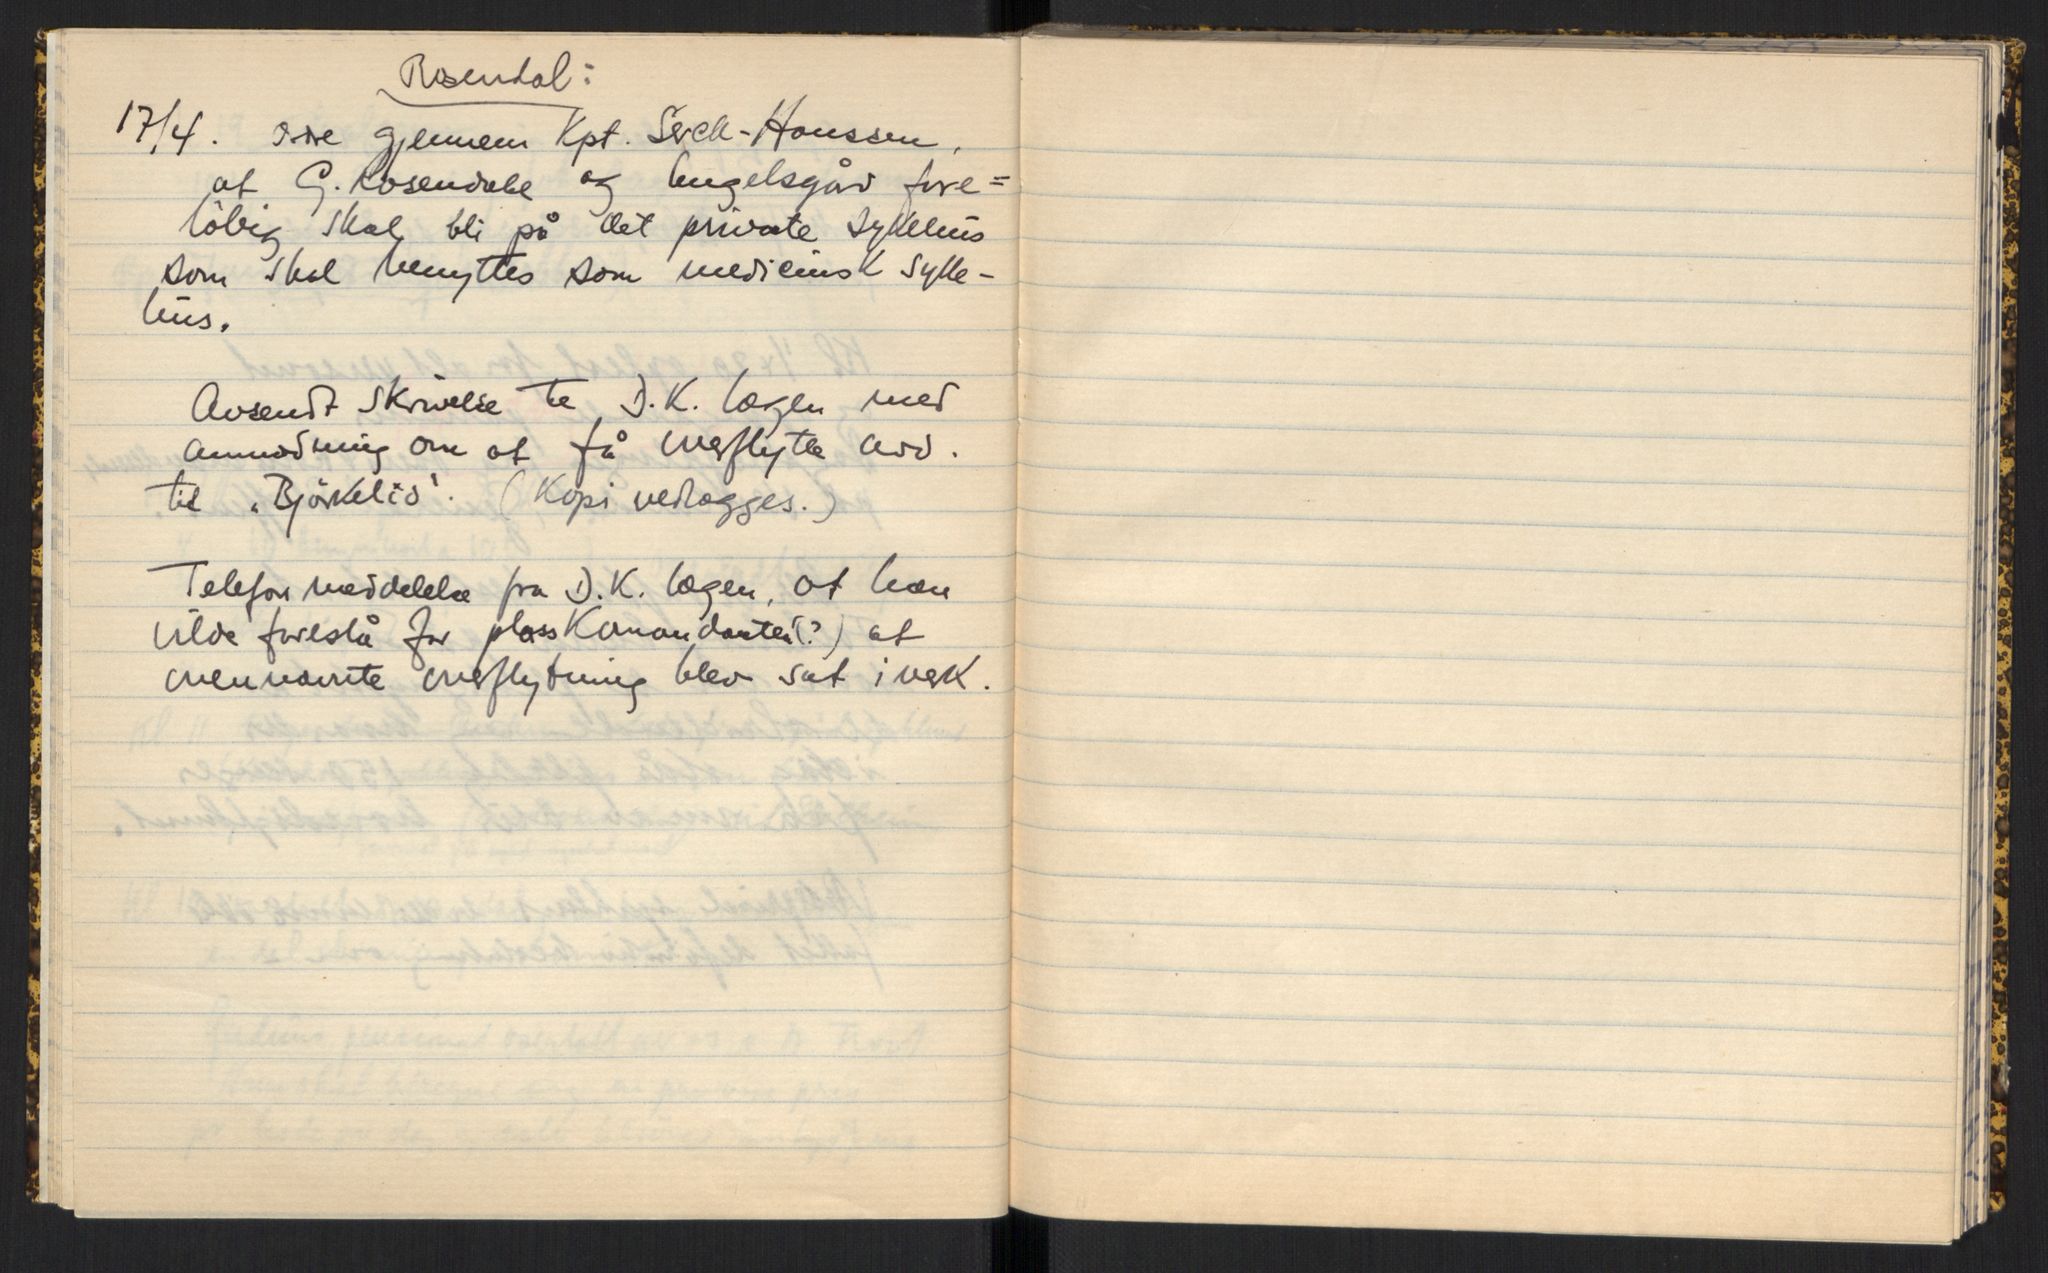 Rosendal:
17/4. Ordre gjennem Kpt. Serck-Hanssen,
at G. Rosendahl og Engelsgård fore=
löbig skal bli på det private sykehus
som skal benyttes som medicinsk syke-
hus.
Avsendt skrivelse til D.K. lægen med
anmodning om at få overflytte avd.
til "Björkelid". (Kopi vedlægges.)
Telefon meddelelse fra D.K. lægen, at han
vilde foreslå for plasskommandanten(?) at
ovennævnte overflytning blev sat i verk.